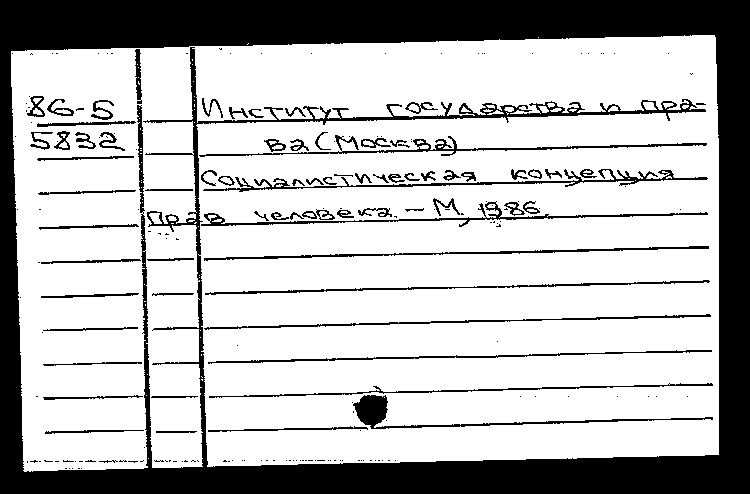 86-5 Институт государства и пра-
5832 ва (Москва)
Социалистическая концепция
прав человека. - М, 1986.